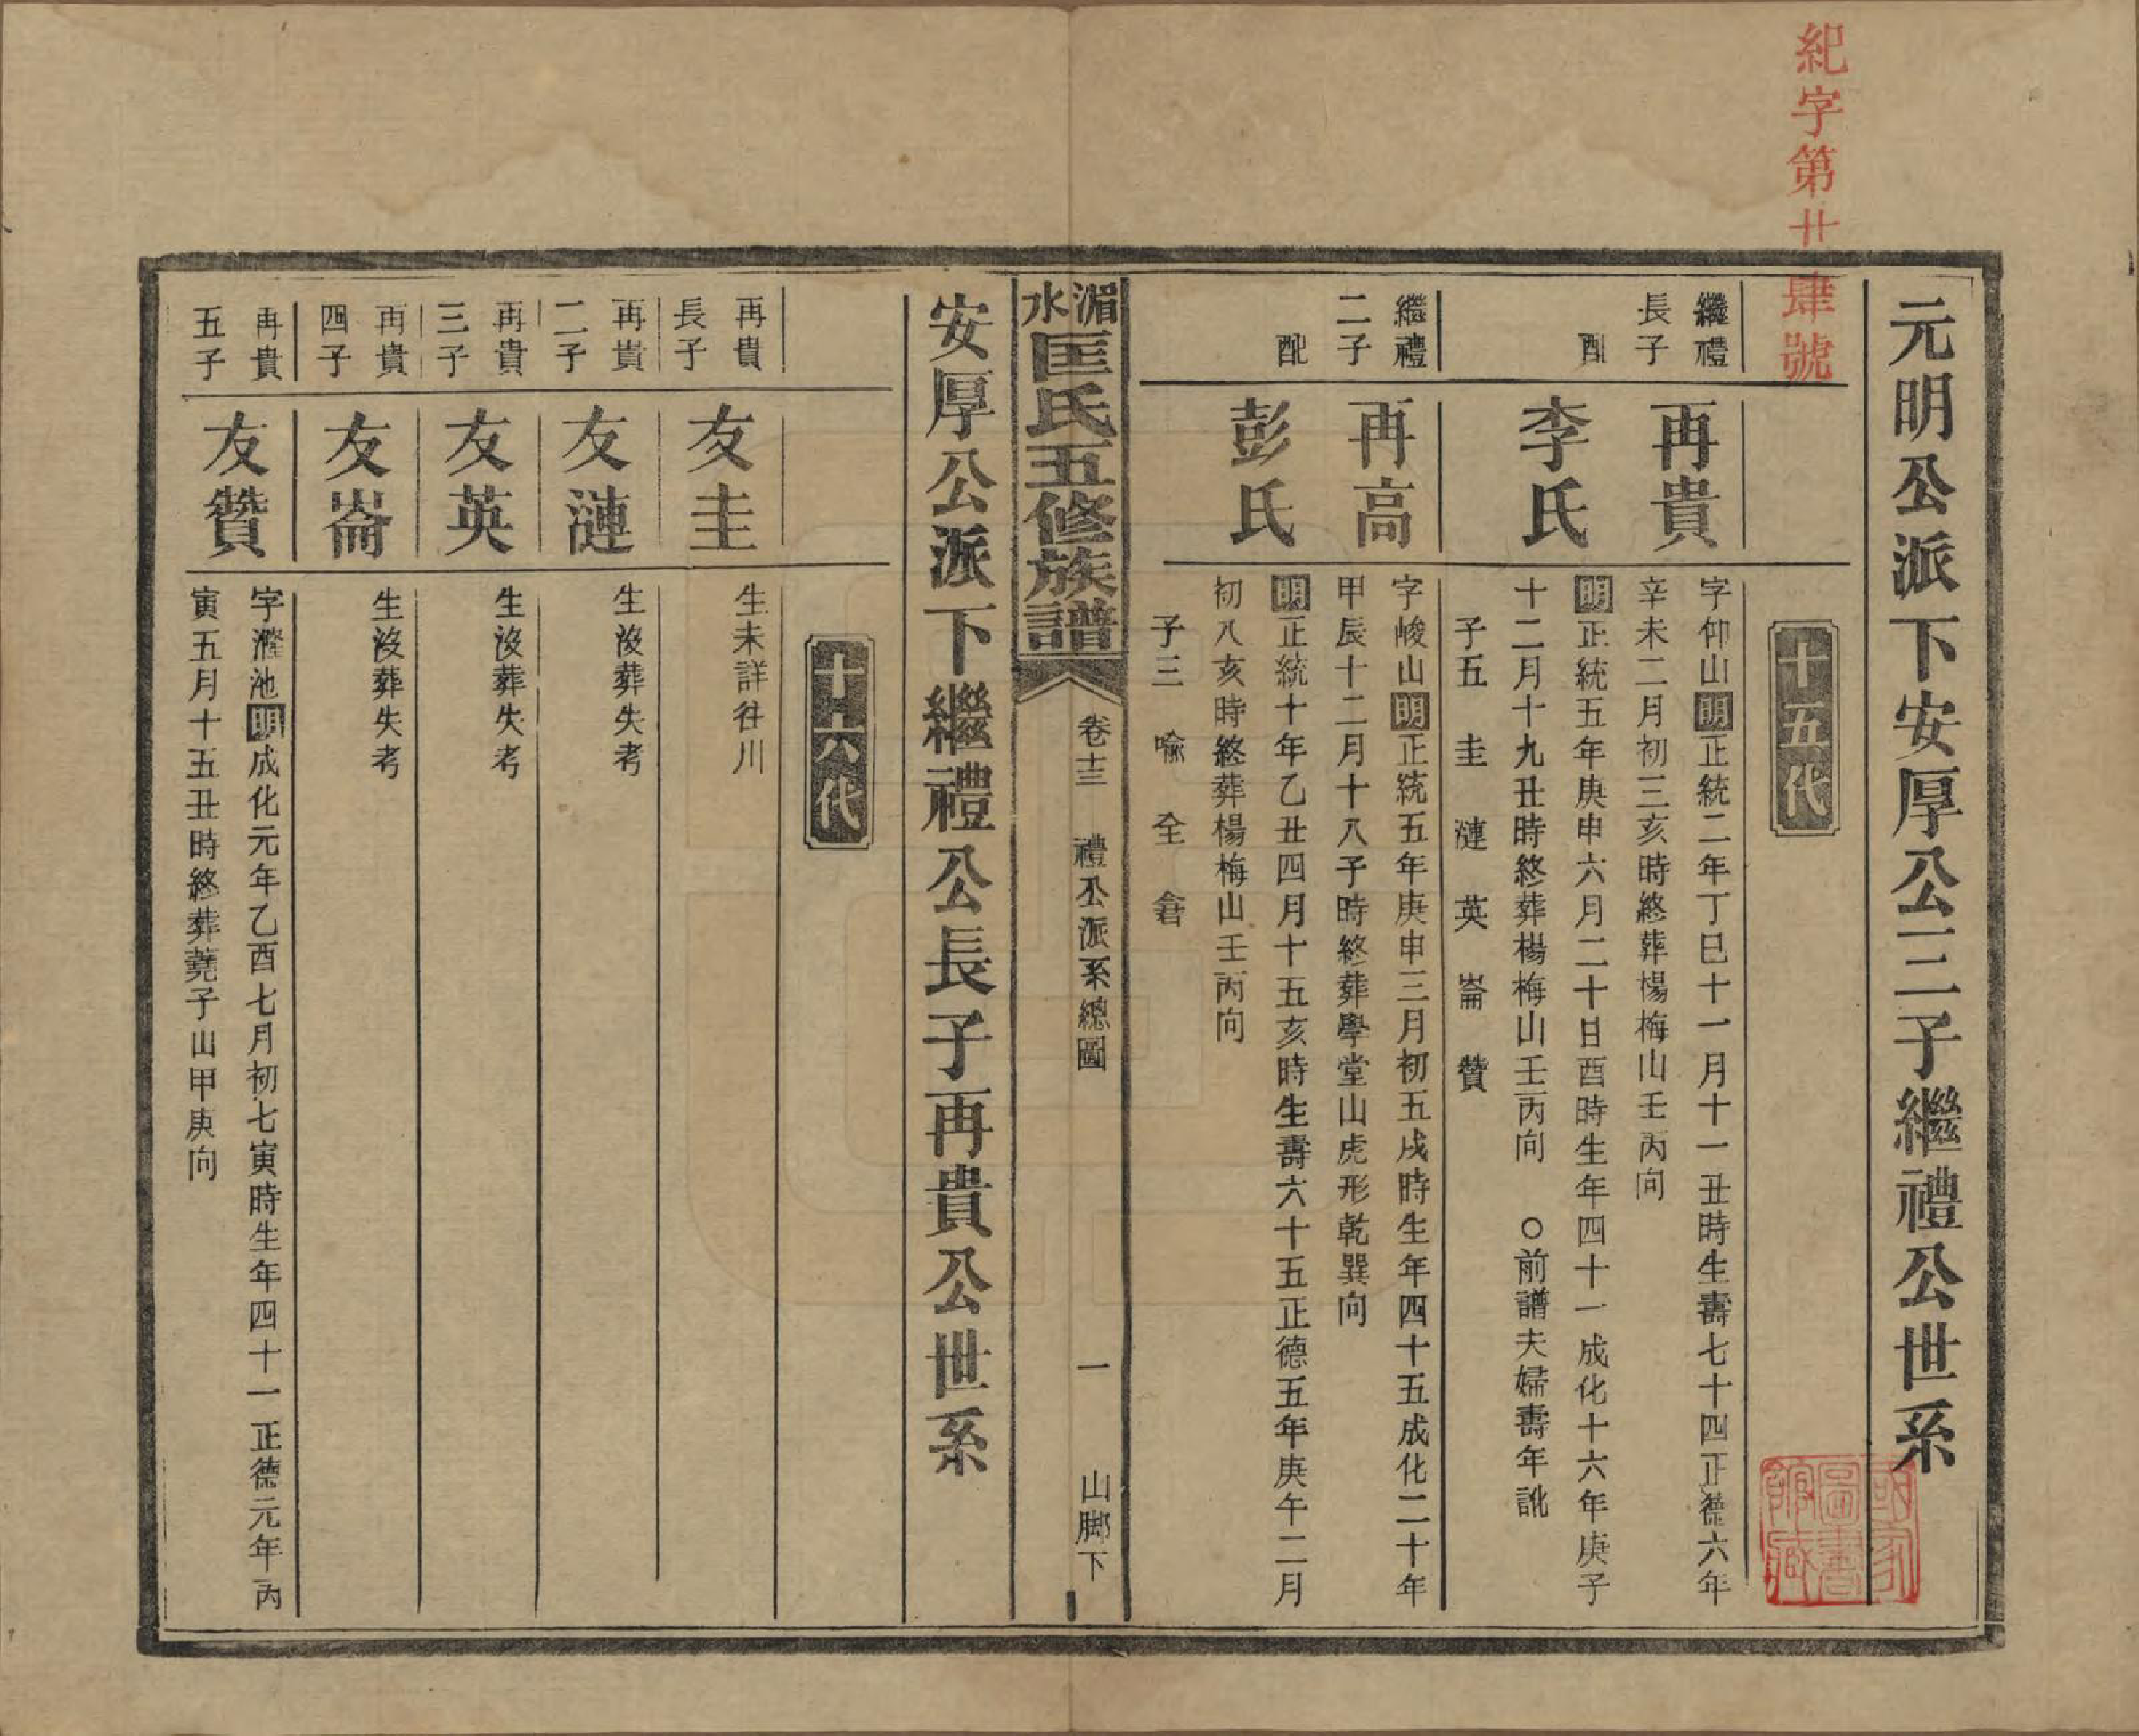 紀字第廿肆號
元明公派下安厚公三子繼禮公世系
十五代
繼禮
長子
再貴
字仰山明正統二年丁巳十一月十一丑時生壽七十四正德六年
辛未二月初三亥時終葬楊梅山壬丙向
配
李氏
明正統五年庚申六月二十日酉時生年四十一成化十六年庚子
十二月十九丑時終葬楊梅山壬丙向　○前譜夫婦壽年訛
子五　圭　漣　英　崙　贊
繼禮
二子
再高
字峻山明正統五年庚申三月初五戌時生年四十五成化二十年
甲辰十二月十八子時終葬學堂山虎形乾巽向
配
彭氏
明正統十年乙丑四月十五亥時生壽六十五正德五年庚午二月
初八亥時終葬楊梅山壬丙向
子三　喩　全　
湄水匡氏五修族譜
卷十三　禮公派系總圖
一　山脚下
安厚公派下繼禮公長子再貴公世系
十六代
再貴
長子
友圭
生未詳往川
再貴
二子
友漣
生沒葬失考
再貴
三子
友英
生沒葬失考
再貴
四子
友崙
生沒葬失考
再貴
五子
友贊
字池明成化元年乙酉七月初七寅時生年四十一正德元年丙
寅五月十五丑時終葬蕘子山甲庚向
國家
圖書
館藏